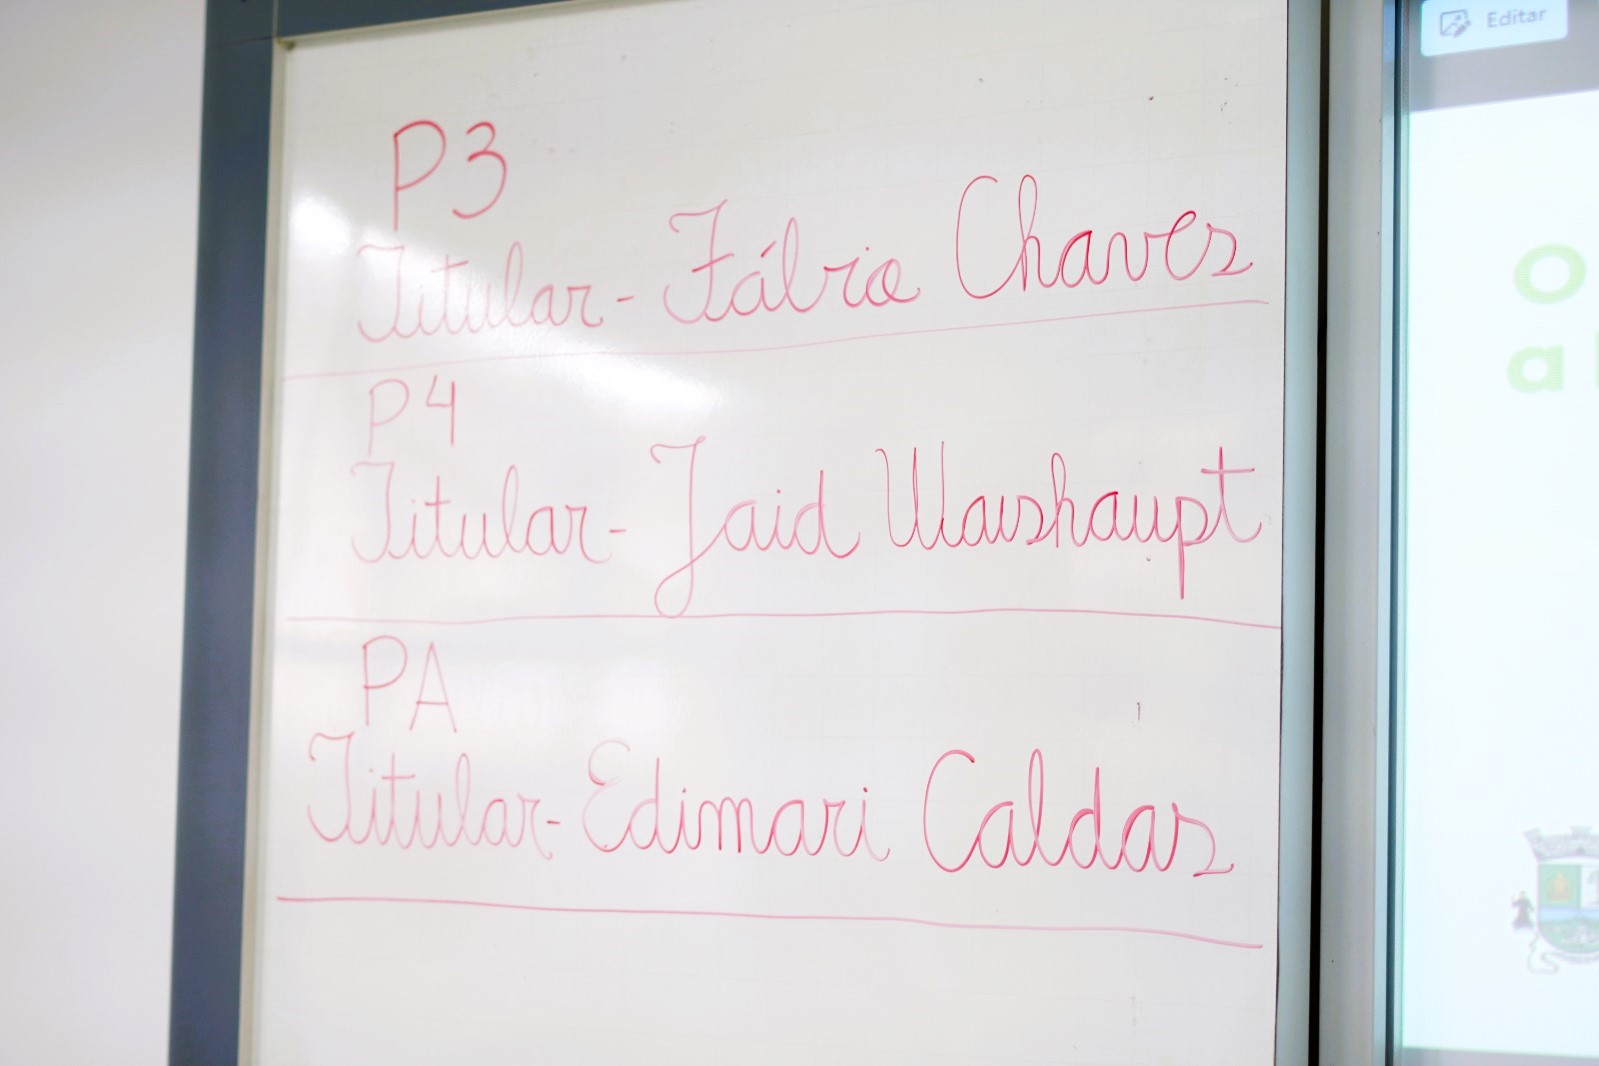 P3
Titular - Fábio Chaves
P4
Titular - Jaid Waishaupt
PA
Titular - Edimari Caldas
Editar